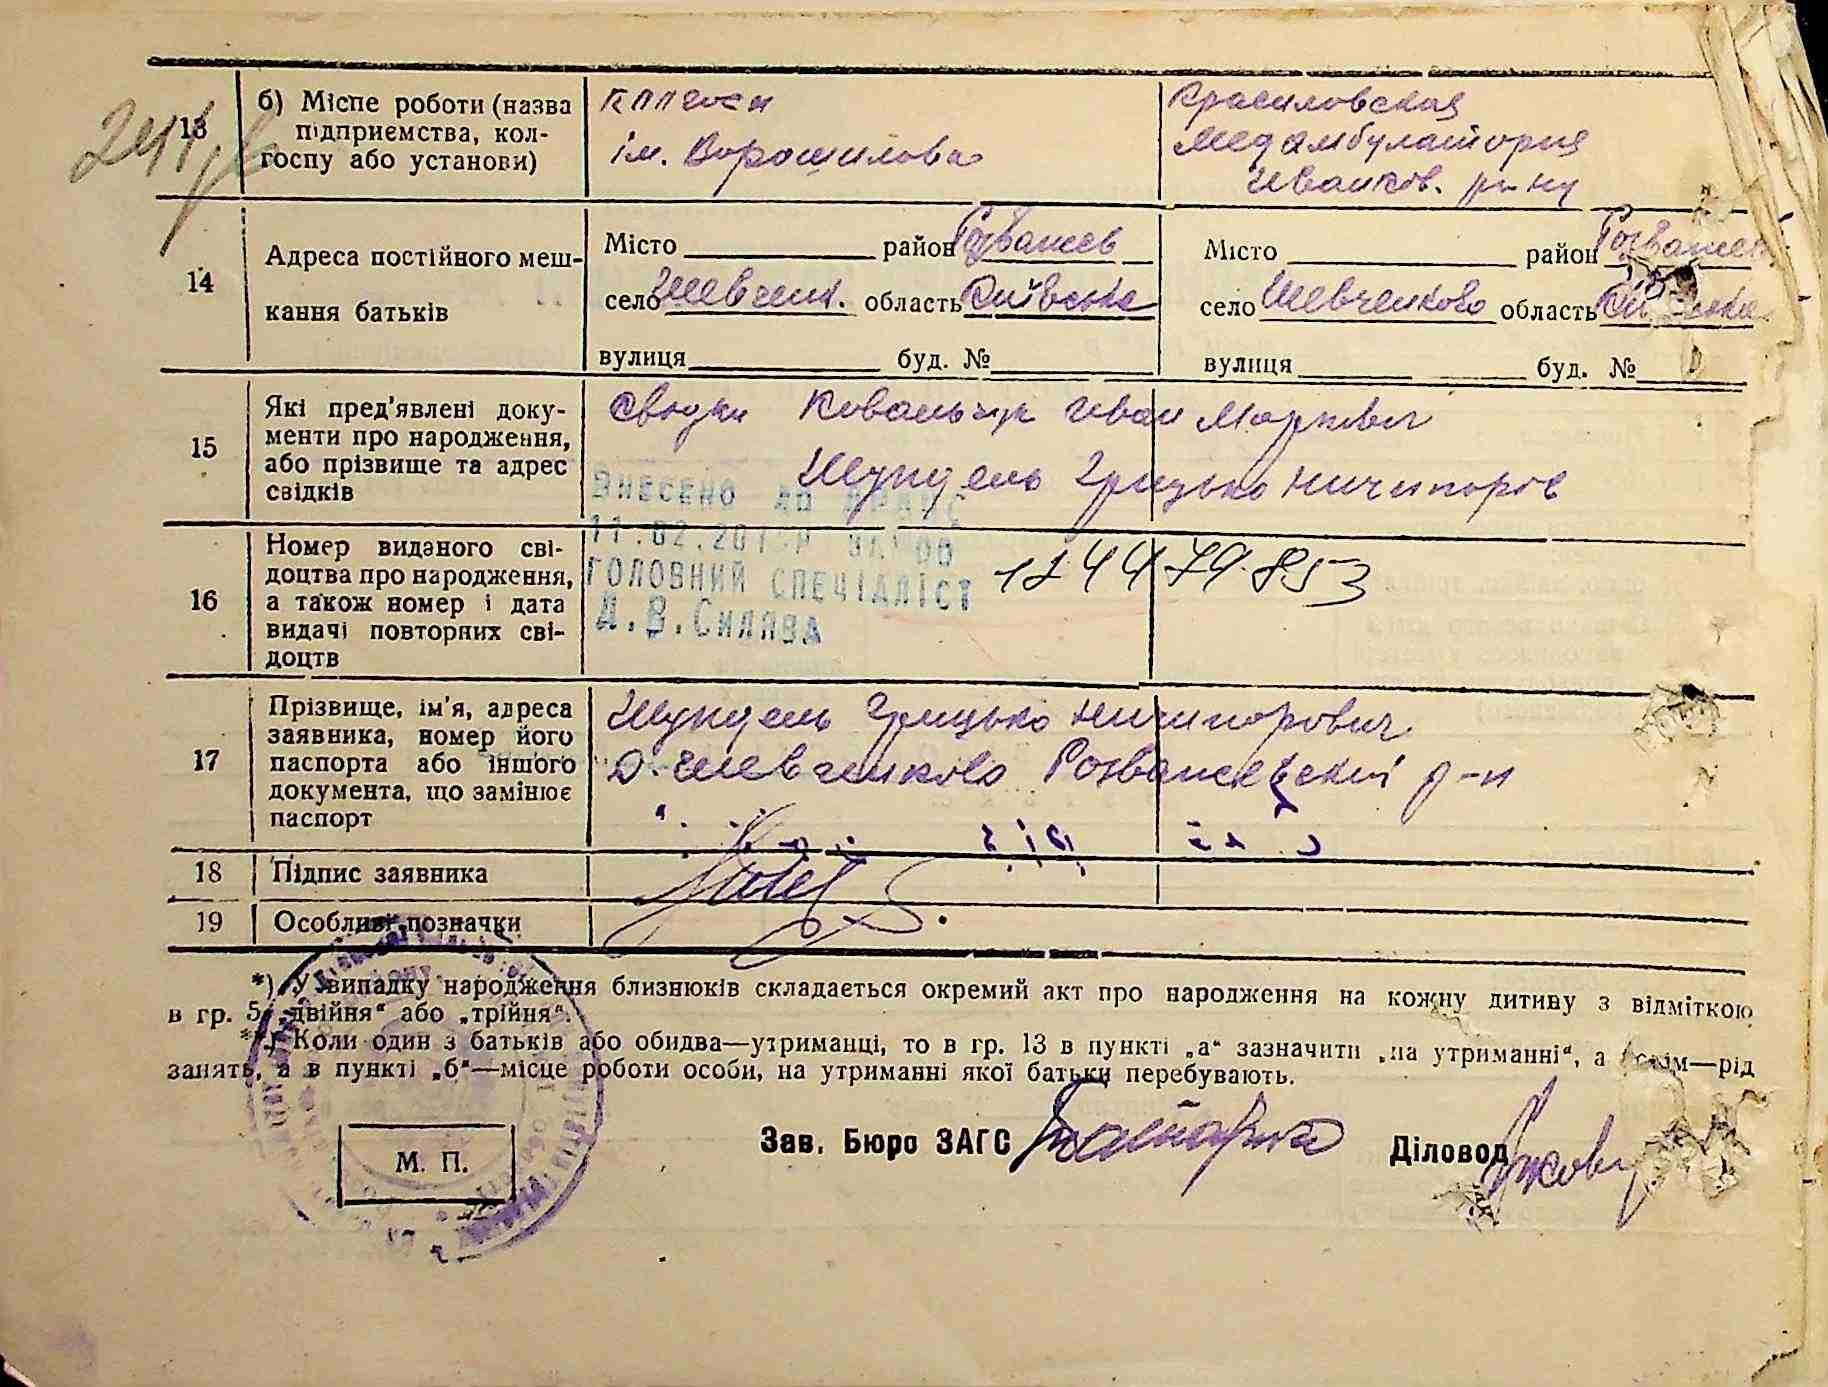 13
б) Місце роботи (назва
підприємства, кол-
госпу або установи)
колгосп
ім. Ворошилова
Красиловская
медамбулатория
Иванков. р-ну
14
Адреса постійного меш-
кання батьків
Місто район Розважев
село Шевченк. область Київська
вулиця буд. №
Місто район Розважев
село Шевченково область Київська
вулиця буд. №
15
Які пред'явлені доку-
менти про народження,
або прізвище та адрес
свідків
Ковальчук Иван Маркович
Шундель Грицько Ничипоров
16
Номер виданого сві-
доцтва про народження,
а також номер і дата
видачі повторних сві-
доцтв
ВНЕСЕНО ДО ДРАЦС
11.02.201
ГОЛОВНИЙ СПЕЦІАЛІСТ
17
Прізвище, ім'я, адреса
заявника, номер його
паспорта або іншого
документа, що замінює
паспорт
Шундель Грицько Ничипорович
Шевченково Розважевский р-н
18
Підпис заявника
19
Особливі позначки
*) У випадку народження близнюків складається окремий акт про народження на кожну дитину з відміткою
в гр. 5 „двійня“ або „трійня“.
**) Коли один з батьків або обидва—утриманці, то в гр. 13 в пункті „а“ зазначити „на утриманні“, а рід
занять, а в пункті „б“—місце роботи особи, на утриманні якої батьки перебувають.
Зав. Бюро ЗАГС
Діловод
М. П.